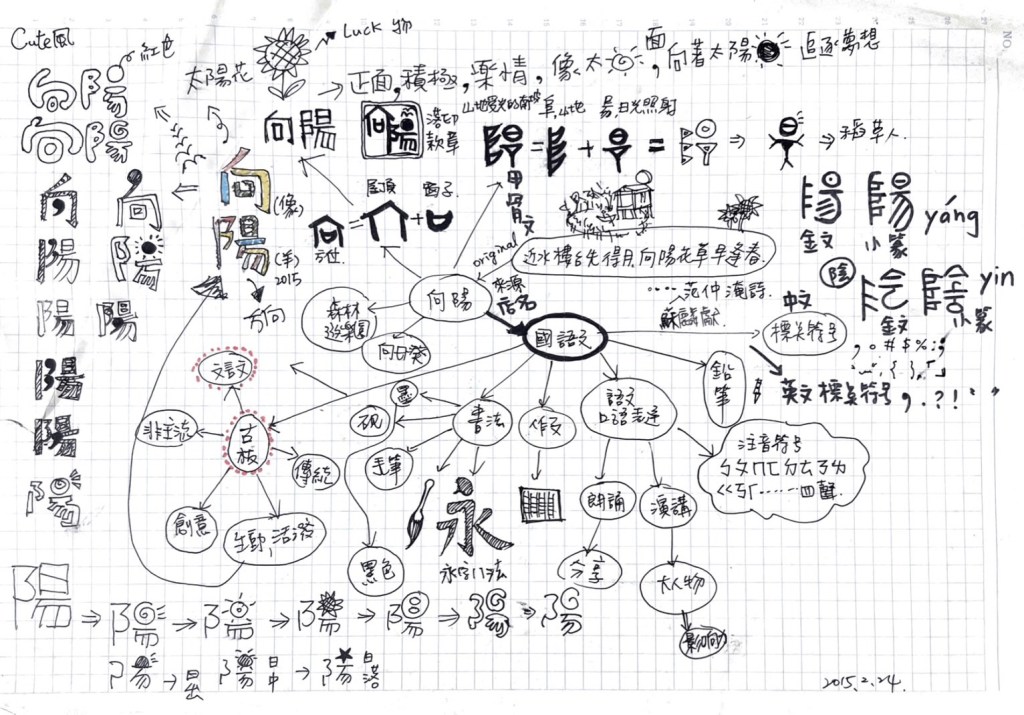 Cute風
紅色
向陽
向陽
太陽花
Luck 物
正面,積極,熱情,像太陽,面向著太陽 追逐夢想
向陽
向陽
落印
款章
山地受光的南坡
阜,山地
昜,日光照射
陽=阝+昜=
稻草人
甲骨文
向陽
(像)
(羊)
2015
方向
向=
屋頂
+
original
來源
店名
近水樓台先得月,向陽花草早逢春.
……范仲淹詩.
蘇麟獻
陽
金文
陽
小篆
yáng
陰
金文
小篆
yin
向
陽
向
陽
陽
陽
陽
陽
陽
向陽
森林
遊樂園
向日葵
國語文
中文
標點符號
, 。# $ % : ;
英文標點符號 , . ? ! " "
鉛筆
語文
口語表達
注音符號
ㄅㄆㄇㄈㄉㄊㄋㄌ
ㄍㄎㄏ……四聲.
書法
墨
硯
毛筆
作文
朗誦
演講
分享
大人物
影響力
永
永字八法
黑色
文話文
古板
非主流
傳統
創意
生動,活潑
陽
陽
陽
陽
陽
陽
陽
陽
日出
陽
日中
陽
日落
2015.2.24.